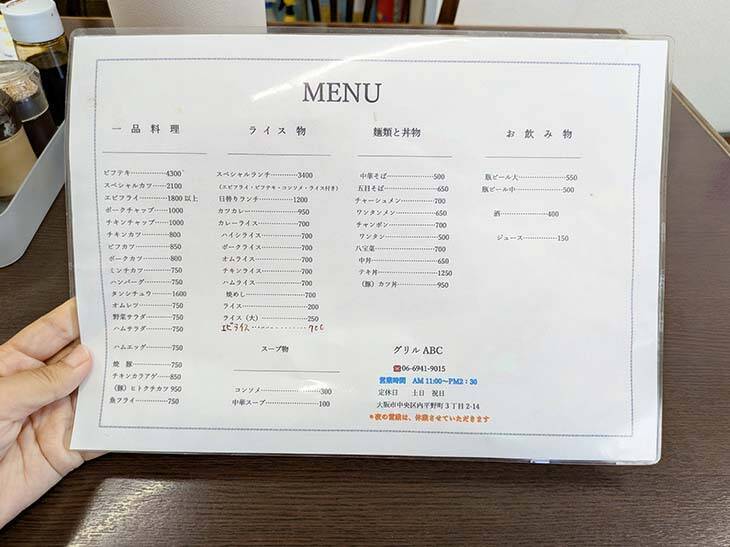 MENU
一品料理
ビフテキ…………4300
スペシャルカツ……2100
エビフライ…………1800以上
ポークチャップ……1000
チキンチャップ……1000
チキンカツ…………800
ビフカツ……………850
ポークカツ…………800
ミンチカツ…………750
ハンバーグ…………750
タンシチュウ………1600
オムレツ……………750
野菜サラダ…………750
ハムサラダ…………750
ハムエッグ…………750
焼豚…………………750
チキンカラアゲ……850
(豚)ヒトクチカツ 950
魚フライ……………750
ライス物
スペシャルランチ…………3400
(エビフライ・ビフテキ・コンソメ・ライス付き)
日替りランチ…………1200
カツカレー……………950
カレーライス…………700
ハイシライス…………700
ポークライス…………700
オムライス……………700
チキンライス…………700
ハムライス……………700
焼めし…………………700
ライス…………………200
ライス(大)……………250
エビライス…………700
スープ物
コンソメ………………300
中華スープ……………100
麺類と丼物
中華そば………………500
五目そば………………650
チャーシュメン………700
ワンタンメン…………650
チャンポン……………700
ワンタン………………500
八宝菜…………………700
中丼……………………650
テキ丼…………………1250
(豚)カツ丼……………950
お飲み物
瓶ビール大……………550
瓶ビール中……………500
酒………………400
ジュース…………150
グリルABC
☎06-6941-9015
営業時間 AM 11:00～PM2:30
定休日 土日 祝日
大阪市中央区内平野町3丁目2-14
*夜の営業は、休業させていただきます